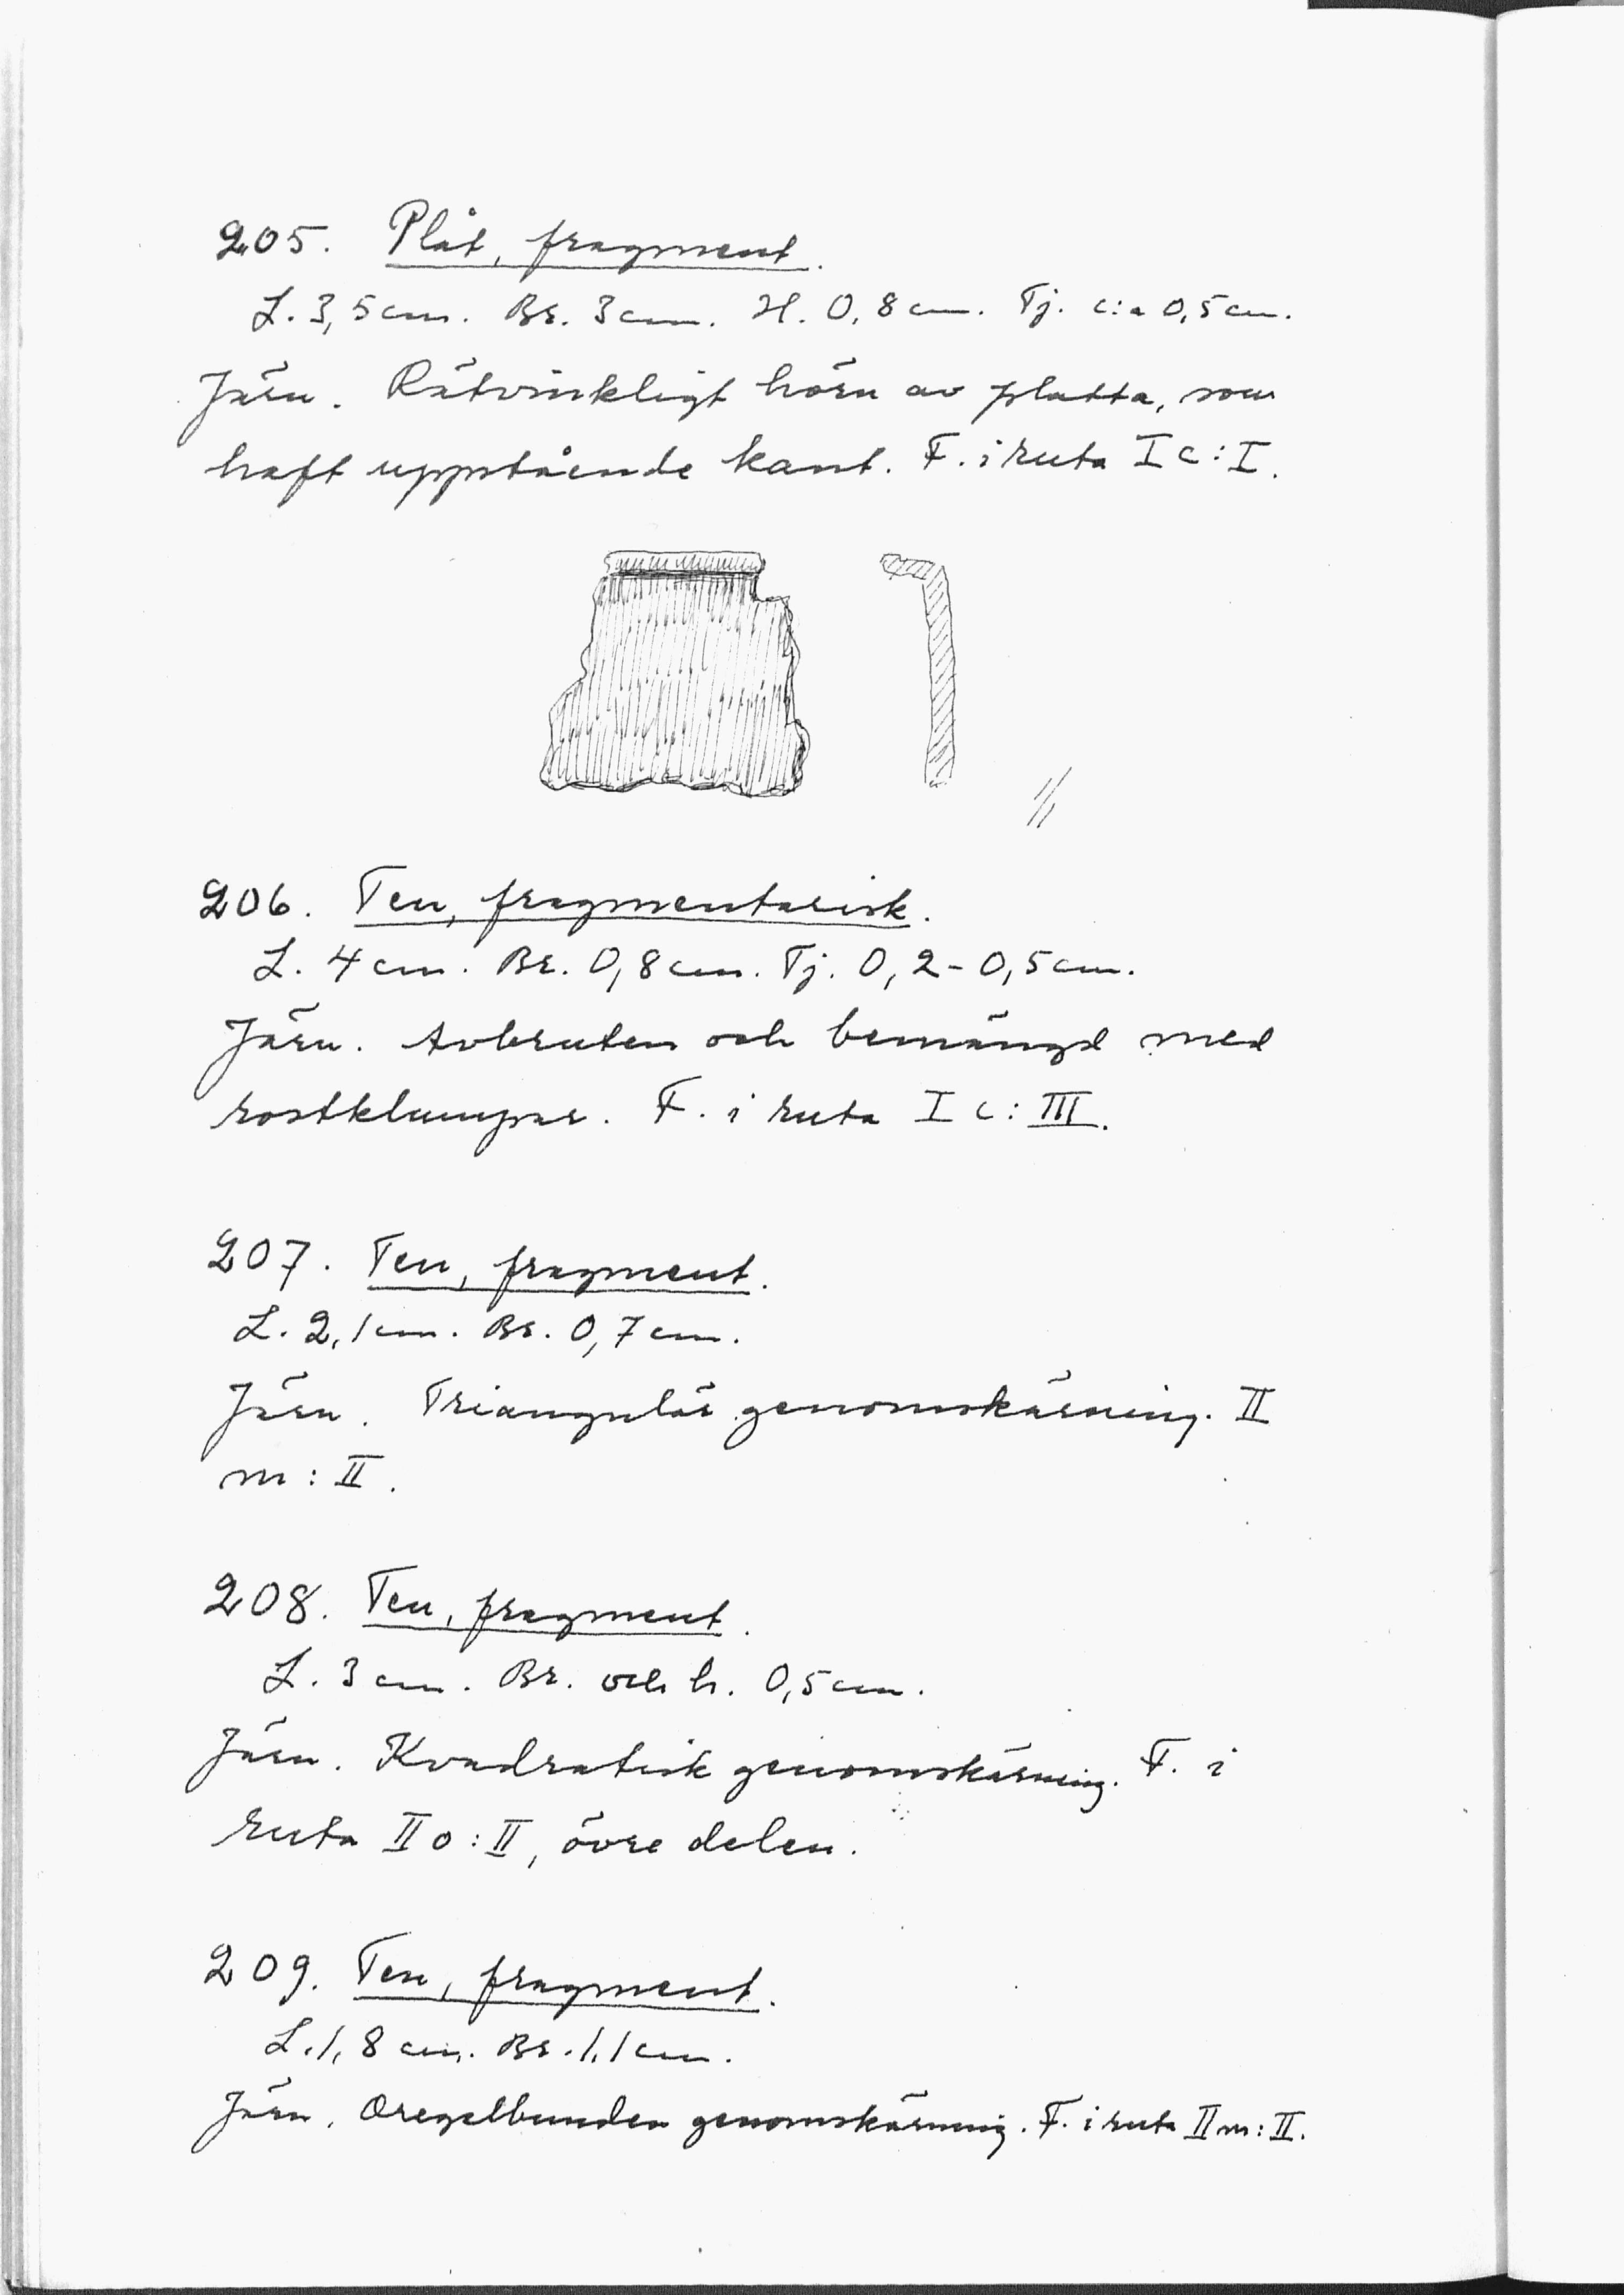 205. Plåt, fragment.
L. 3,5 cm. Br. 3 cm. H. 0,8 cm. Tj. c:a 0,5 cm.
Järn. Rätvinkligt hörn av platta, som
haft uppstående kant. F. i ruta I c: I.
1/1
206. Ten, fragmentarisk.
L. 4 cm. Br. 0,8 cm. Tj. 0,2 - 0,5 cm.
Järn. Avbruten och bemängd med
rostklumpar. F. i ruta I c: III.
207. Ten, fragment.
L. 2,1 cm. Br. 0,7 cm.
Järn. Triangulär genomskärning. II
m: II.
208. Ten, fragment.
L. 3 cm. Br. och h. 0,5 cm.
Järn. Kvadratisk genomskärning. F. i
ruta II o: II, övre delen.
209. Ten, fragment.
L. 1,8 cm. Br. 1,1 cm.
Järn. Oregelbunden genomskärning. F. i ruta II m: II.